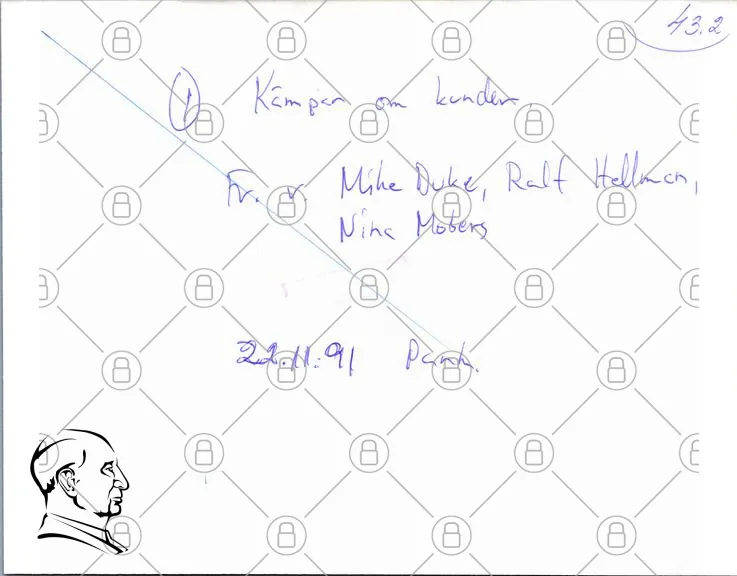 43.2
① Kämpar om kunder.
Fr. v. Mike Duke, Ralf Hellman,
Nina Moberg
22.11.91 Pank.